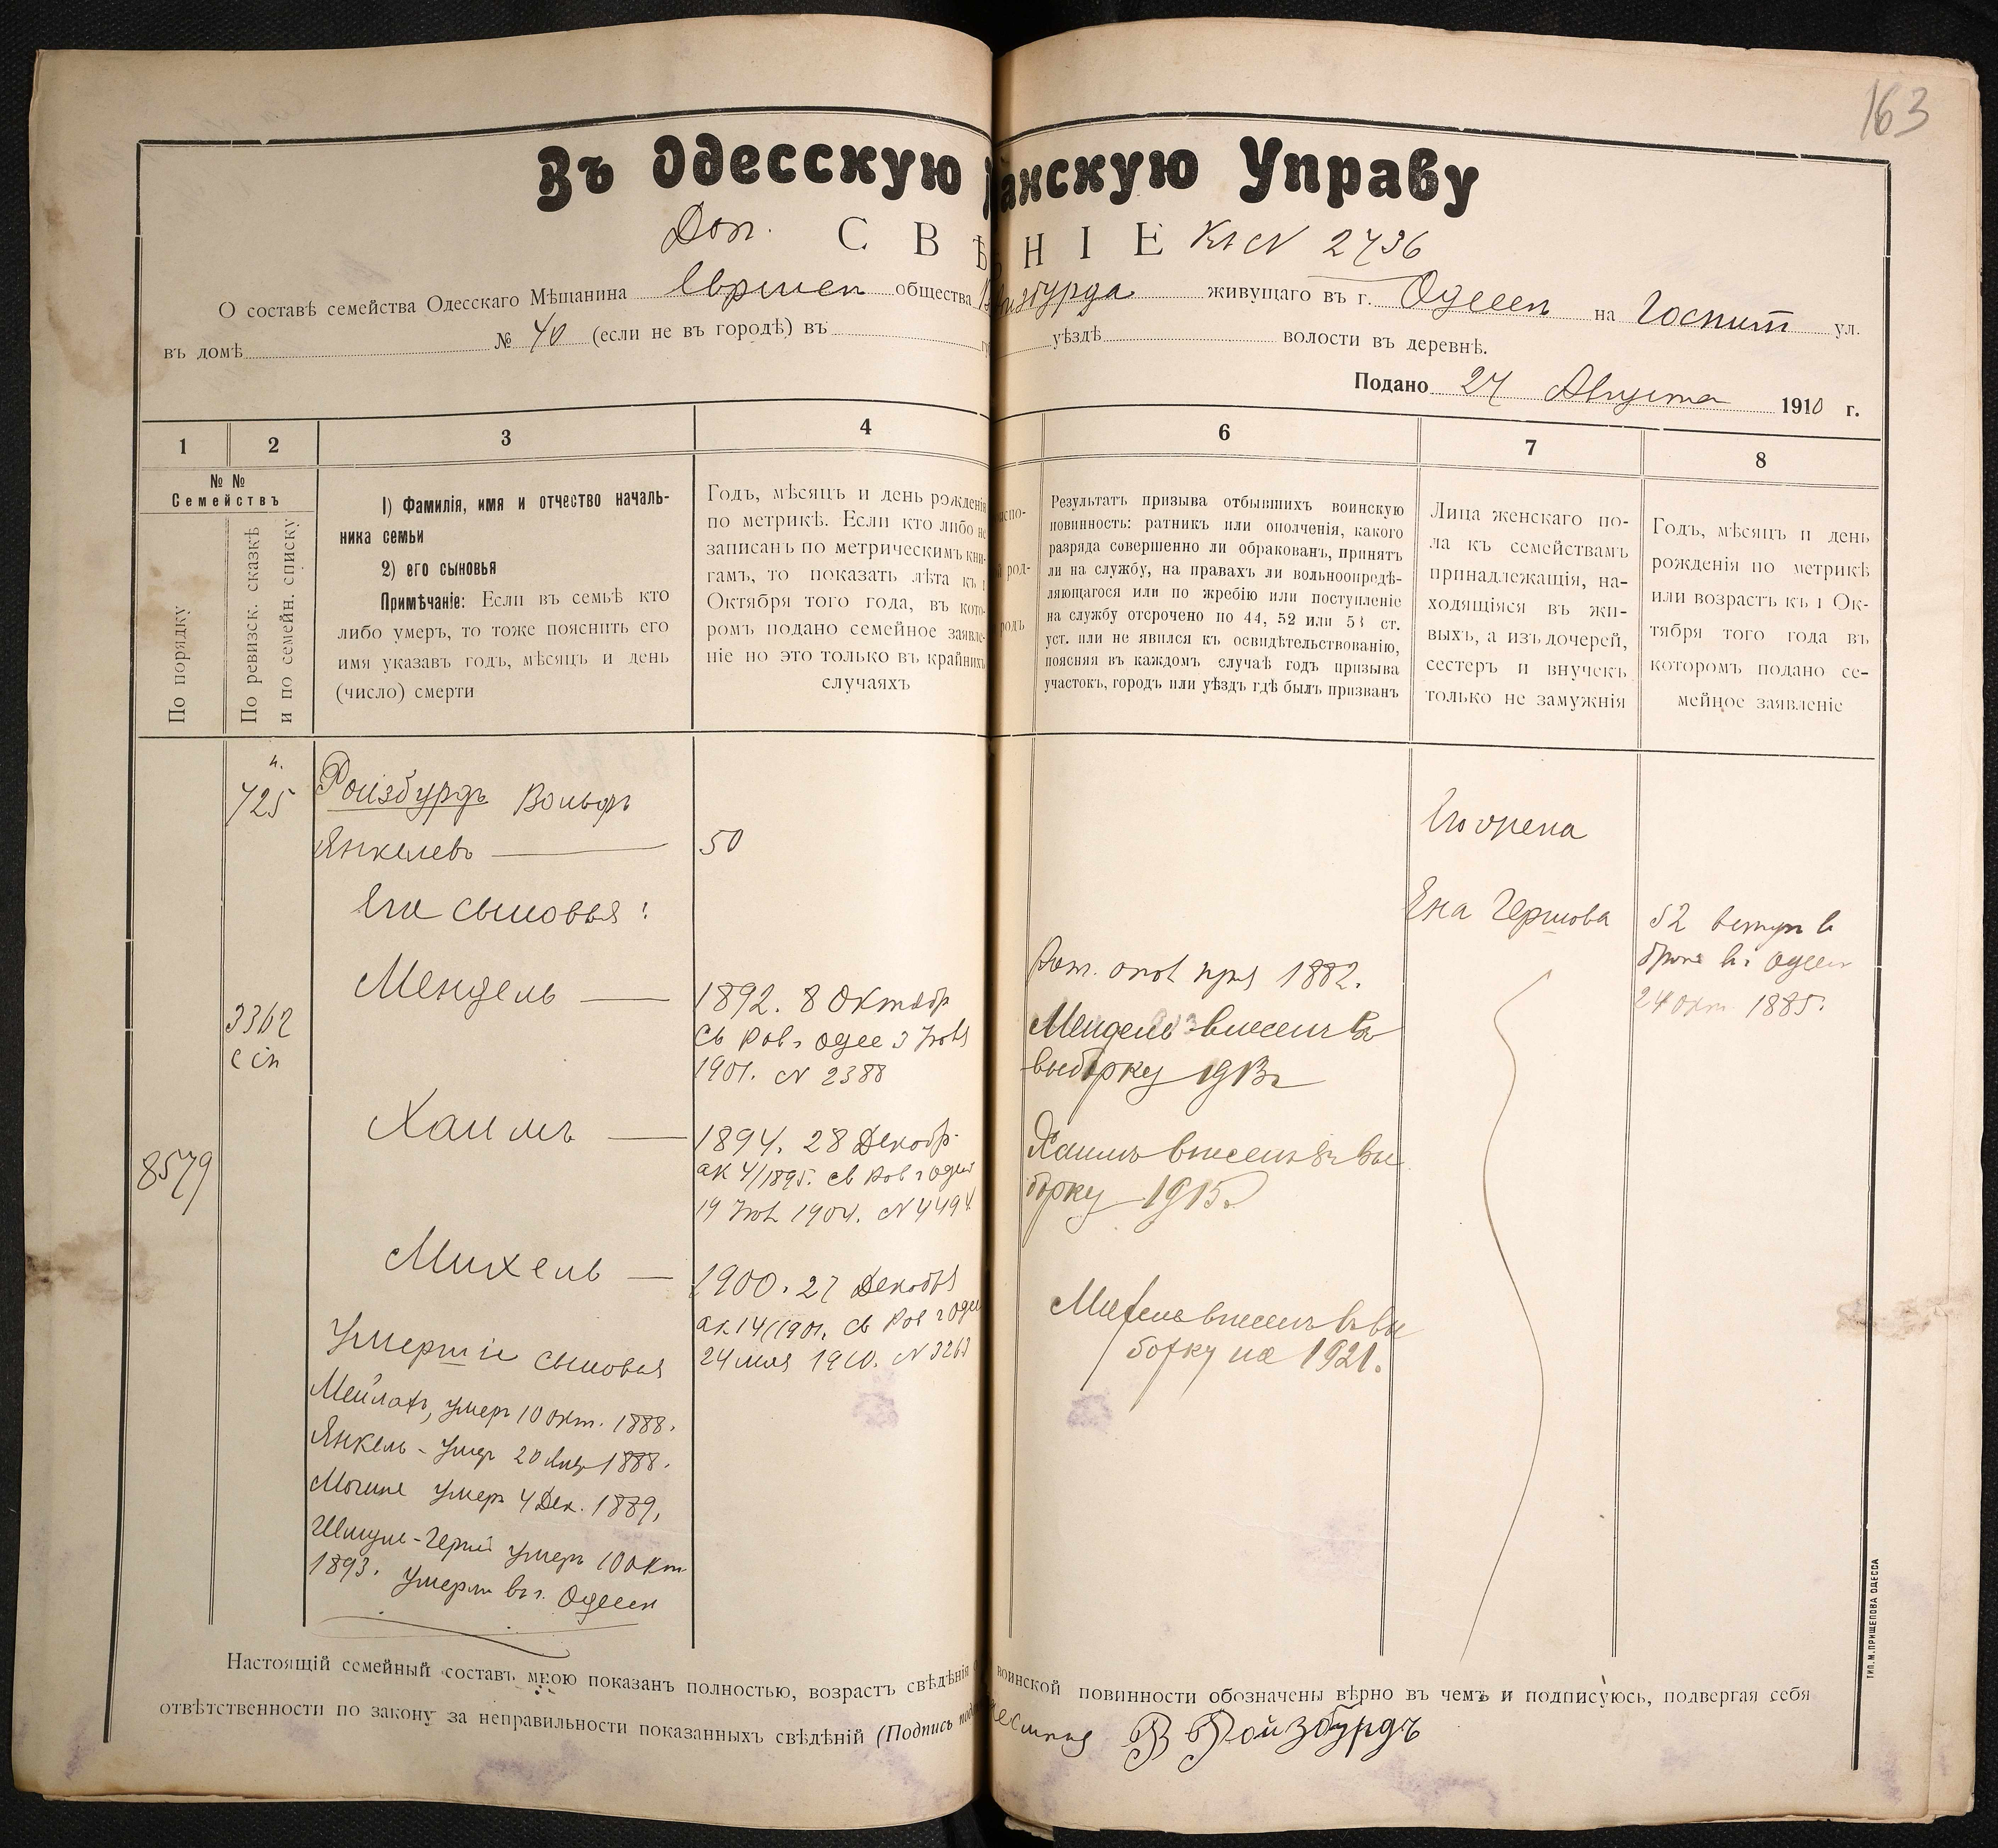 163
Въ Одесскую анскую Управу
Доп. С В Ѣ Н І Е К № 2736
О составѣ семейства Одесскаго Мѣщанина Еврейск общества ойзбурда живущаго въ г. Одессѣ на Госпит ул.
въ домѣ № 40 (если не въ городѣ) въ уѣздѣ волости въ деревнѣ.
Подано 24 Августа 1910 г.
1 2 3 4 6 7 8
№ №
Семействъ
По порядку
По ревизск. сказкѣ
и по семейн. списку
1) Фамилія, имя и отчество началь-
ника семьи
2) его сыновья
Примѣчаніе: Если въ семьѣ кто
либо умеръ, то тоже пояснить его
имя указавъ годъ, мѣсяцъ и день
(число) смерти
Годъ, мѣсяцъ и день рожденія
по метрикѣ. Если кто либо не
записанъ по метрическимъ кни-
гамъ, то показать лѣта къ 1
Октября того года, въ кото-
ромъ подано семейное заявле-
ніе но это только въ крайнихъ
случаяхъ
испо-
род-
родъ
Результатъ призыва отбывшихъ воинскую
повинность: ратникъ или ополченія, какого
разряда совершенно ли обракованъ, принятъ
ли на службу, на правахъ ли вольноопредѣ-
ляющагося или по жребію или поступленіе
на службу отсрочено по 44, 52 или 53 ст.
уст. или не явился къ освидѣтельствованію,
поясняя въ каждомъ случаѣ годъ призыва
участокъ, городъ или уѣздъ гдѣ былъ призванъ
Лица женскаго по-
ла къ семействамъ
принадлежащія, на-
ходящіяся въ жи-
выхъ, а изъ дочерей,
сестеръ и внучекъ
только не замужнія
Годъ, мѣсяцъ и день
рожденія по метрикѣ
или возрастъ къ 1 Ок-
тября того года въ
которомъ подано се-
мейное заявленіе
725
Ройзбурдъ Вольфъ
Янкелевъ — 50
Его сыновья:
3362
Мендель — 1892. 8 Октябр
Св Рав г Одес 3 Іюля
1901. № 2388
8579
Хаимъ — 1894. 28 Декабр
ак 4/1895. Св Рав г Одес
19 1904. № 4494
Михель — 1900. 27 Декабря
ак 14/1901. Св Рав г Одес
24 мая 1910. № 3263
Умершіе сыновья
Мейлахъ, умеръ 10 окт. 1888.
Янкель - умеръ 20 1888.
умеръ 4 Дек. 1889,
Шмуль-Герш умеръ 10 окт
1893. Умерли въ г. Одессѣ
Рат. опол приз 1882.
Мендель внесенъ въ
выборку 1913 г
Хаимъ внесенъ въ вы
борку 1915 г
Михель внесенъ въ вы
борку на 1921.
Его жена
Ена Гершова
52 вступ в
бракъ въ Одессѣ
24 окт 1885.
Настоящій семейный составъ мною показанъ полностью, возрастъ свѣдѣнія воинской повинности обозначены вѣрно въ чемъ и подписуюсь, подвергая себя
отвѣтственности по закону за неправильности показанныхъ свѣдѣній (Подпись В Ройзбурдъ
ТИП. М. ПРИЩЕПОВА ОДЕССА